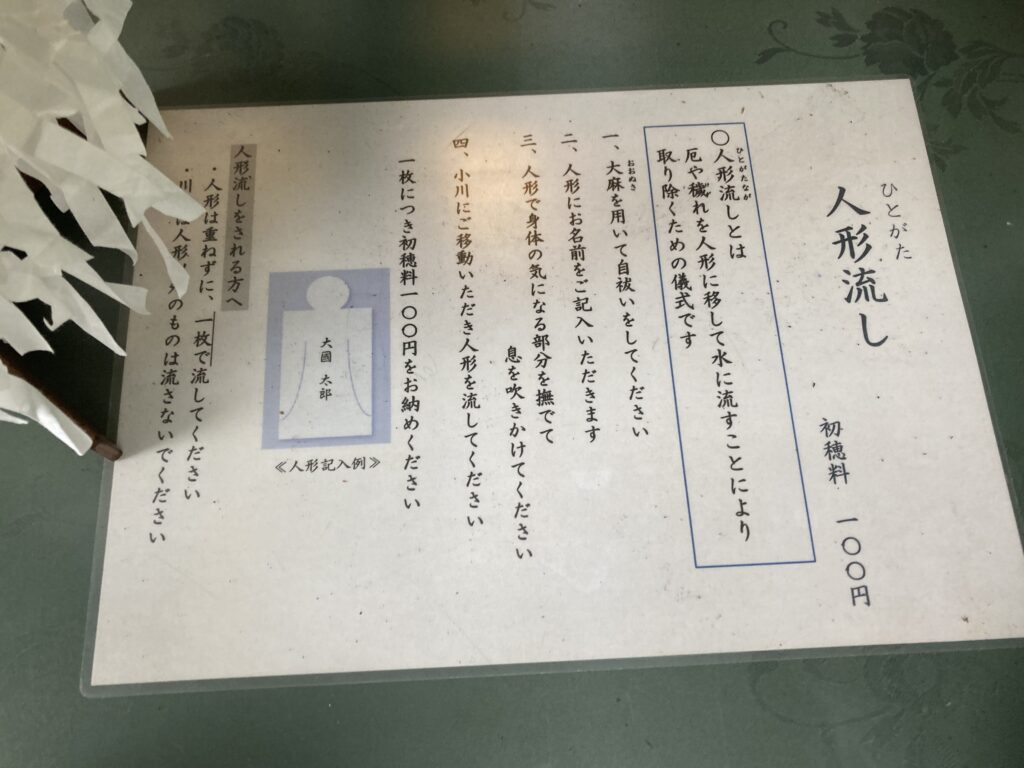 ひとがた
人形流し
初穂料 一〇〇円
ひとがたなが
〇人形流しとは
厄や穢れを人形に移して水に流すことにより
取り除くための儀式です
おおぬさ
一、大麻を用いて自祓いをしてください
二、人形にお名前をご記入いただきます
三、人形で身体の気になる部分を撫でて
息を吹きかけてください
四、小川にご移動いただき人形を流してください
一枚につき初穂料一〇〇円をお納めください
大國 太郎
≪人形記入例≫
人形流しをされる方へ
・人形は重ねずに、一枚で流してください
・川 は人形 のものは流さないでください